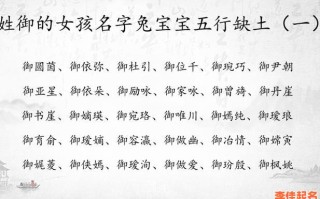 姓御的女孩名字兔宝宝五行缺土（一）
御圆菌、御依弥、御杜引、御位千、御琬巧、御尹朝
御亚星、御依朵、御励咏、御家咏、御曾祷、御丹崖
御书崖、御嫡瑛、御宛珞、御唯川、御嫣纯、御瑷琅
御育俞、御瑷嫡、御容瀛、御做幽、御冶情、御婂寅
御娓菱、御侠嫣、御瑷洵、御做爱、御玢殷、御枫姚
李佳起名